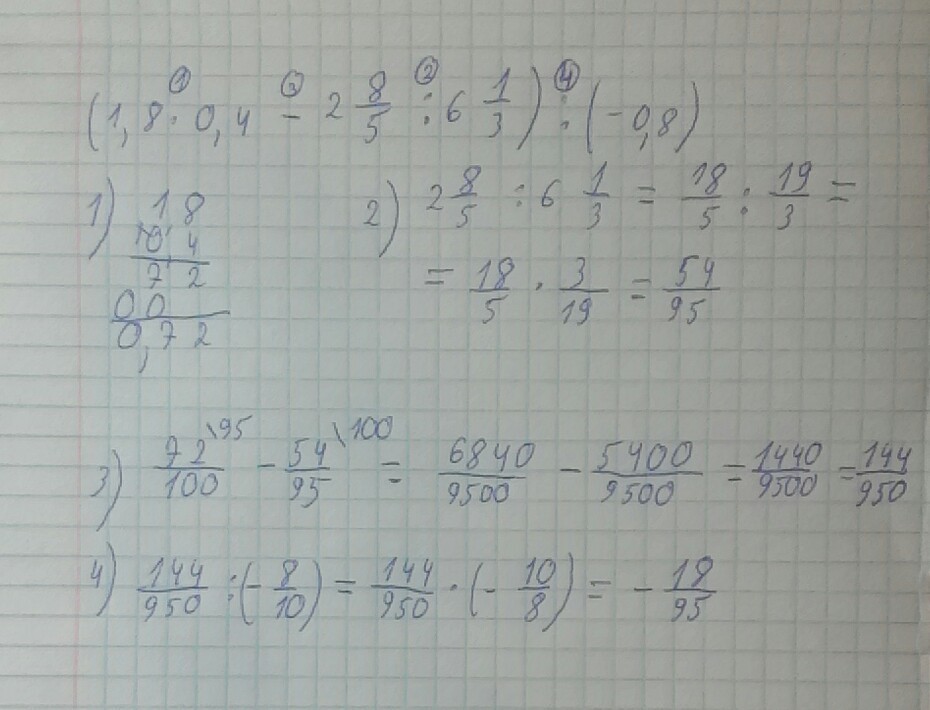 ① ③ ② ④
(1,8 · 0,4 − 2 8/5 : 6 1/3) : (−0,8)
1) 18
0 4
7 2
00
0,72
2) 2 8/5 : 6 1/3 = 18/5 : 19/3 =
= 18/5 · 3/19 = 54/95
3) 72/100 \95 − 54/95 \100 = 6840/9500 − 5400/9500 = 1440/9500 = 144/950
4) 144/950 : (− 8/10) = 144/950 · (− 10/8) = − 18/95